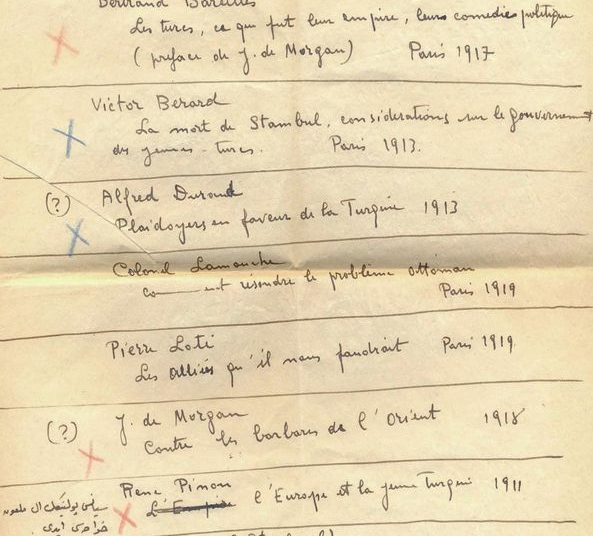 Bertrand Bareilles
Les turcs, ce que fut leur empire, leurs comedies politique
(preface de J. de Morgan) Paris 1917
Victor Berard
La mort de Stambul, considerations sur le gouvernement
des jeunes-turcs. Paris 1913.
(?) Alfred Durand
Plaidoyers en faveur de la Turquie 1913
Colonel Lamouche
résoudre le problème ottoman
Paris 1919
Pierre Loti
Les alliés qu'il nous faudrait Paris 1919
(?) J. de Morgan 1918
Contre les barbares de l'Orient
Rene Pinon
l'Europe et la jeune Turquie 1911